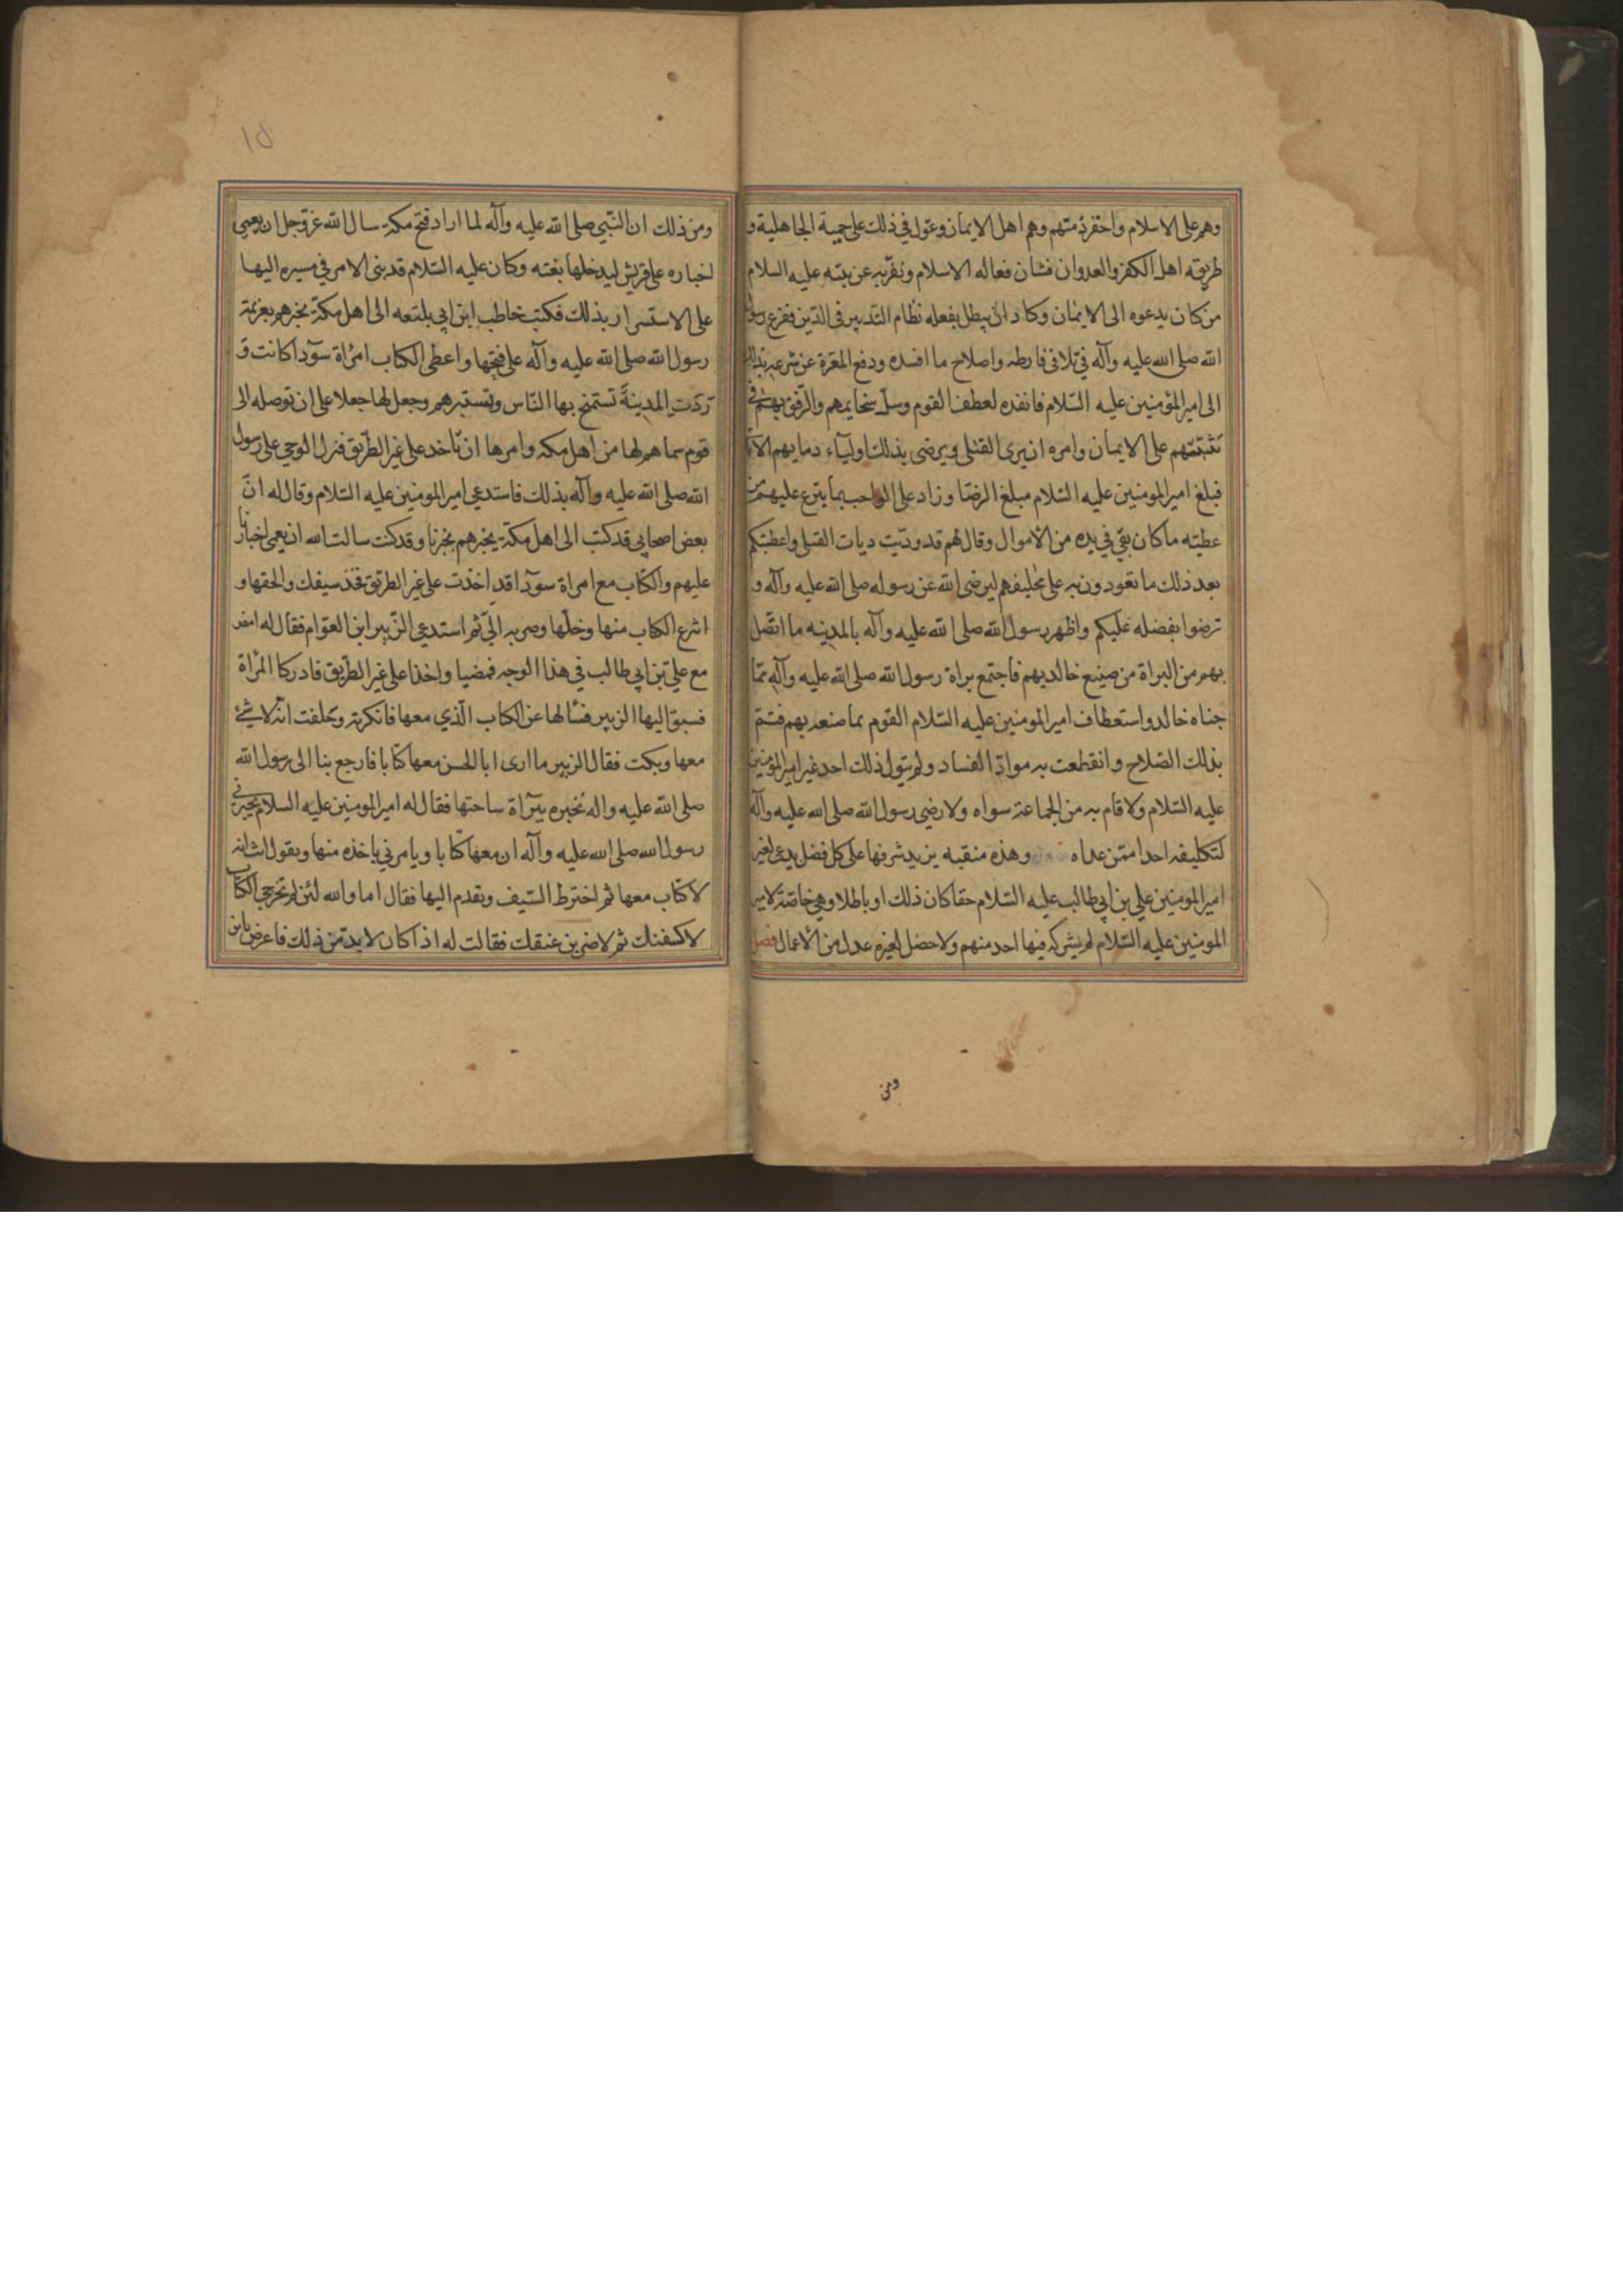 وهم على الاسلام واخفر ذمتهم وهم اهل الايمان وعول في ذلك على حمية الجاهلية و
طريقه اهل الكفر والعدوان فشان فعاله الاسلام ونفر به عن نبيه عليه السلام
من كان يدعوه الى الايمان وكاد ان يبطل بفعله نظام التدبير فى الدين ففزع رسول
الله صلى الله عليه وآله في تلافى فارطه واصلاح ما افسده ودفع المعرة عن شرعه بذلك
الى امير المؤمنين عليه السّلام فانفذه لعطف القوم وسلّ سخايمهم والرّفق بهم في
تثبيتهم على الايمان وامره ان يرى القتلى ويرضى بذلك اوليآء دمايهم الا
فبلغ امير المومنين عليه السّلام مبلغ الرضا وزاد على الواجب بما يترع عليهم من
عطيته ما كان بقي في يده من الأموال وقال لهم قد ودّيت ديات القتلى واعطيتكم
بعد ذلك ما تعودون به على مخليفهم ليرضى الله عن رسوله صلى الله عليه وآله و
ترضوا بفضله عليكم واظهر رسول الله صلى الله عليه وآله بالمدينه ما اتّصل
بهم من البراة من صنيع خالد بهم فاجتمع براة رسول الله صلى الله عليه وآله ممّا
جناه خالد واستعطاف امير المومنين عليه السّلام القوم بما صنعه بهم فتمّ
بذلك الصّلاح وانقطعت به موادّ الفساد ولم يتول ذلك احد غير امير المؤمنين
عليه السّلام ولا قام به من الجماعة سواه ولا رضي رسول الله صلى الله عليه وآله
لتكليفه احدا ممّن عداه وهذه منقبه يزيد شرفها على كل فضل يدعى لغير
امير المومنين علي بن ابي طالب عليه السّلام حقا كان ذلك او باطلا وهي خاصّة لامير
المومنين عليه السّلام لم يشركه فيها احد منهم ولا حصل لغيره عدل من الأعمال فصل
ومن
١٥
ومن ذلك ان النّبي صلى الله عليه وآله لما اراد فتح مكة سال الله عزّ وجل ان يعمي
اخباره على قريش ليدخلها بغته وكان عليه السّلام قد بنى الامر في مسيره اليها
على الاستسرار بذلك فكتب خاطب ابن ابي بلتعه الى اهل مكة يخبرهم بعزيمة
رسول الله صلى الله عليه وآله على فتحها واعطى الكتاب امرأة سودآ كانت و
ردت المدينة تستمنح بها النّاس وتستبرهم وجعل لها جعلا على ان توصله الى
قوم سماهم لها من اهل مكه وامرها ان تاخد على غير الطّريق فنزل الوحي على رسول
الله صلى الله عليه وآله بذلك فاستدعي امير المومنين عليه السّلام وقال له انّ
بعض اصحابي قد كتب الى اهل مكة يخبرهم بخبرنا وقد كنت سالت الله ان يعمى اخبارنا
عليهم والكتاب مع امراة سودآ قد اخذت على غير الطريق فخذ سيفك والحقها و
انتزع الكتاب منها وخلّها وصر به اليّ ثم استدعي الزّبير ابن العوّام فقال له امض
مع علي بن ابي طالب في هذا الوجه فمضيا واخذا على غير الطّريق فادركا المرأة
فسبق اليها الزبير فسألها عن الكتاب الّذي معها فانكرته وحلفت انّه لا شئ
معها وبكت فقال الزبير ما ارى ابا الحسن معها كتابا فارجع بنا الى رسول الله
صلى الله عليه واله نخبره ببرآة ساحتها فقال له امير المومنين عليه السلام يخبرني
رسول الله صلى الله عليه وآله ان معها كتابا ويامرني باخذه منها وتقول انت انه
لا كتاب معها ثم اخترط السّيف وتقدم اليها فقال اما والله لئن لم تخرجي الكتاب
لاكشفنك ثم لاضربن عنقك فقالت له اذا كان لا بدّ من ذلك فاعرض يابن